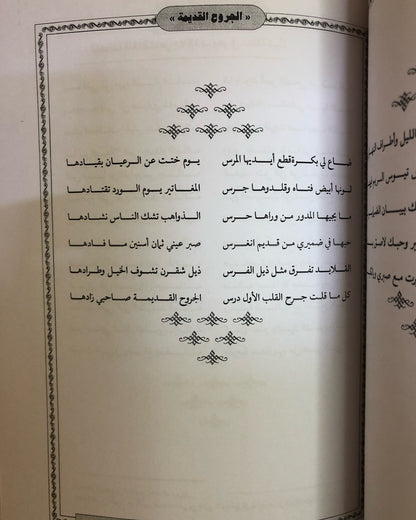 « الجروح القديمة »
ضاع لي بكرة قطع أيديها المرس يوم ختت عن الرعيان بقيادها
لونها أبيض فتاه وقلدوها جرس المغاتير يوم الورد تقتادها
ما يجيها المدور من وراها حرس الذواهب تشك الناس نشادها
حبها في ضميري من قديم انغرس صبر عيني ثمان أسنين ما فادها
القلايد تفرق مثل ذيل الفرس ذيل شقرن تشوف الخيل وطرادها
كل ما قلت جرح القلب الأول درس الجروح القديمة صاحبي زادها
الليل وأطراف